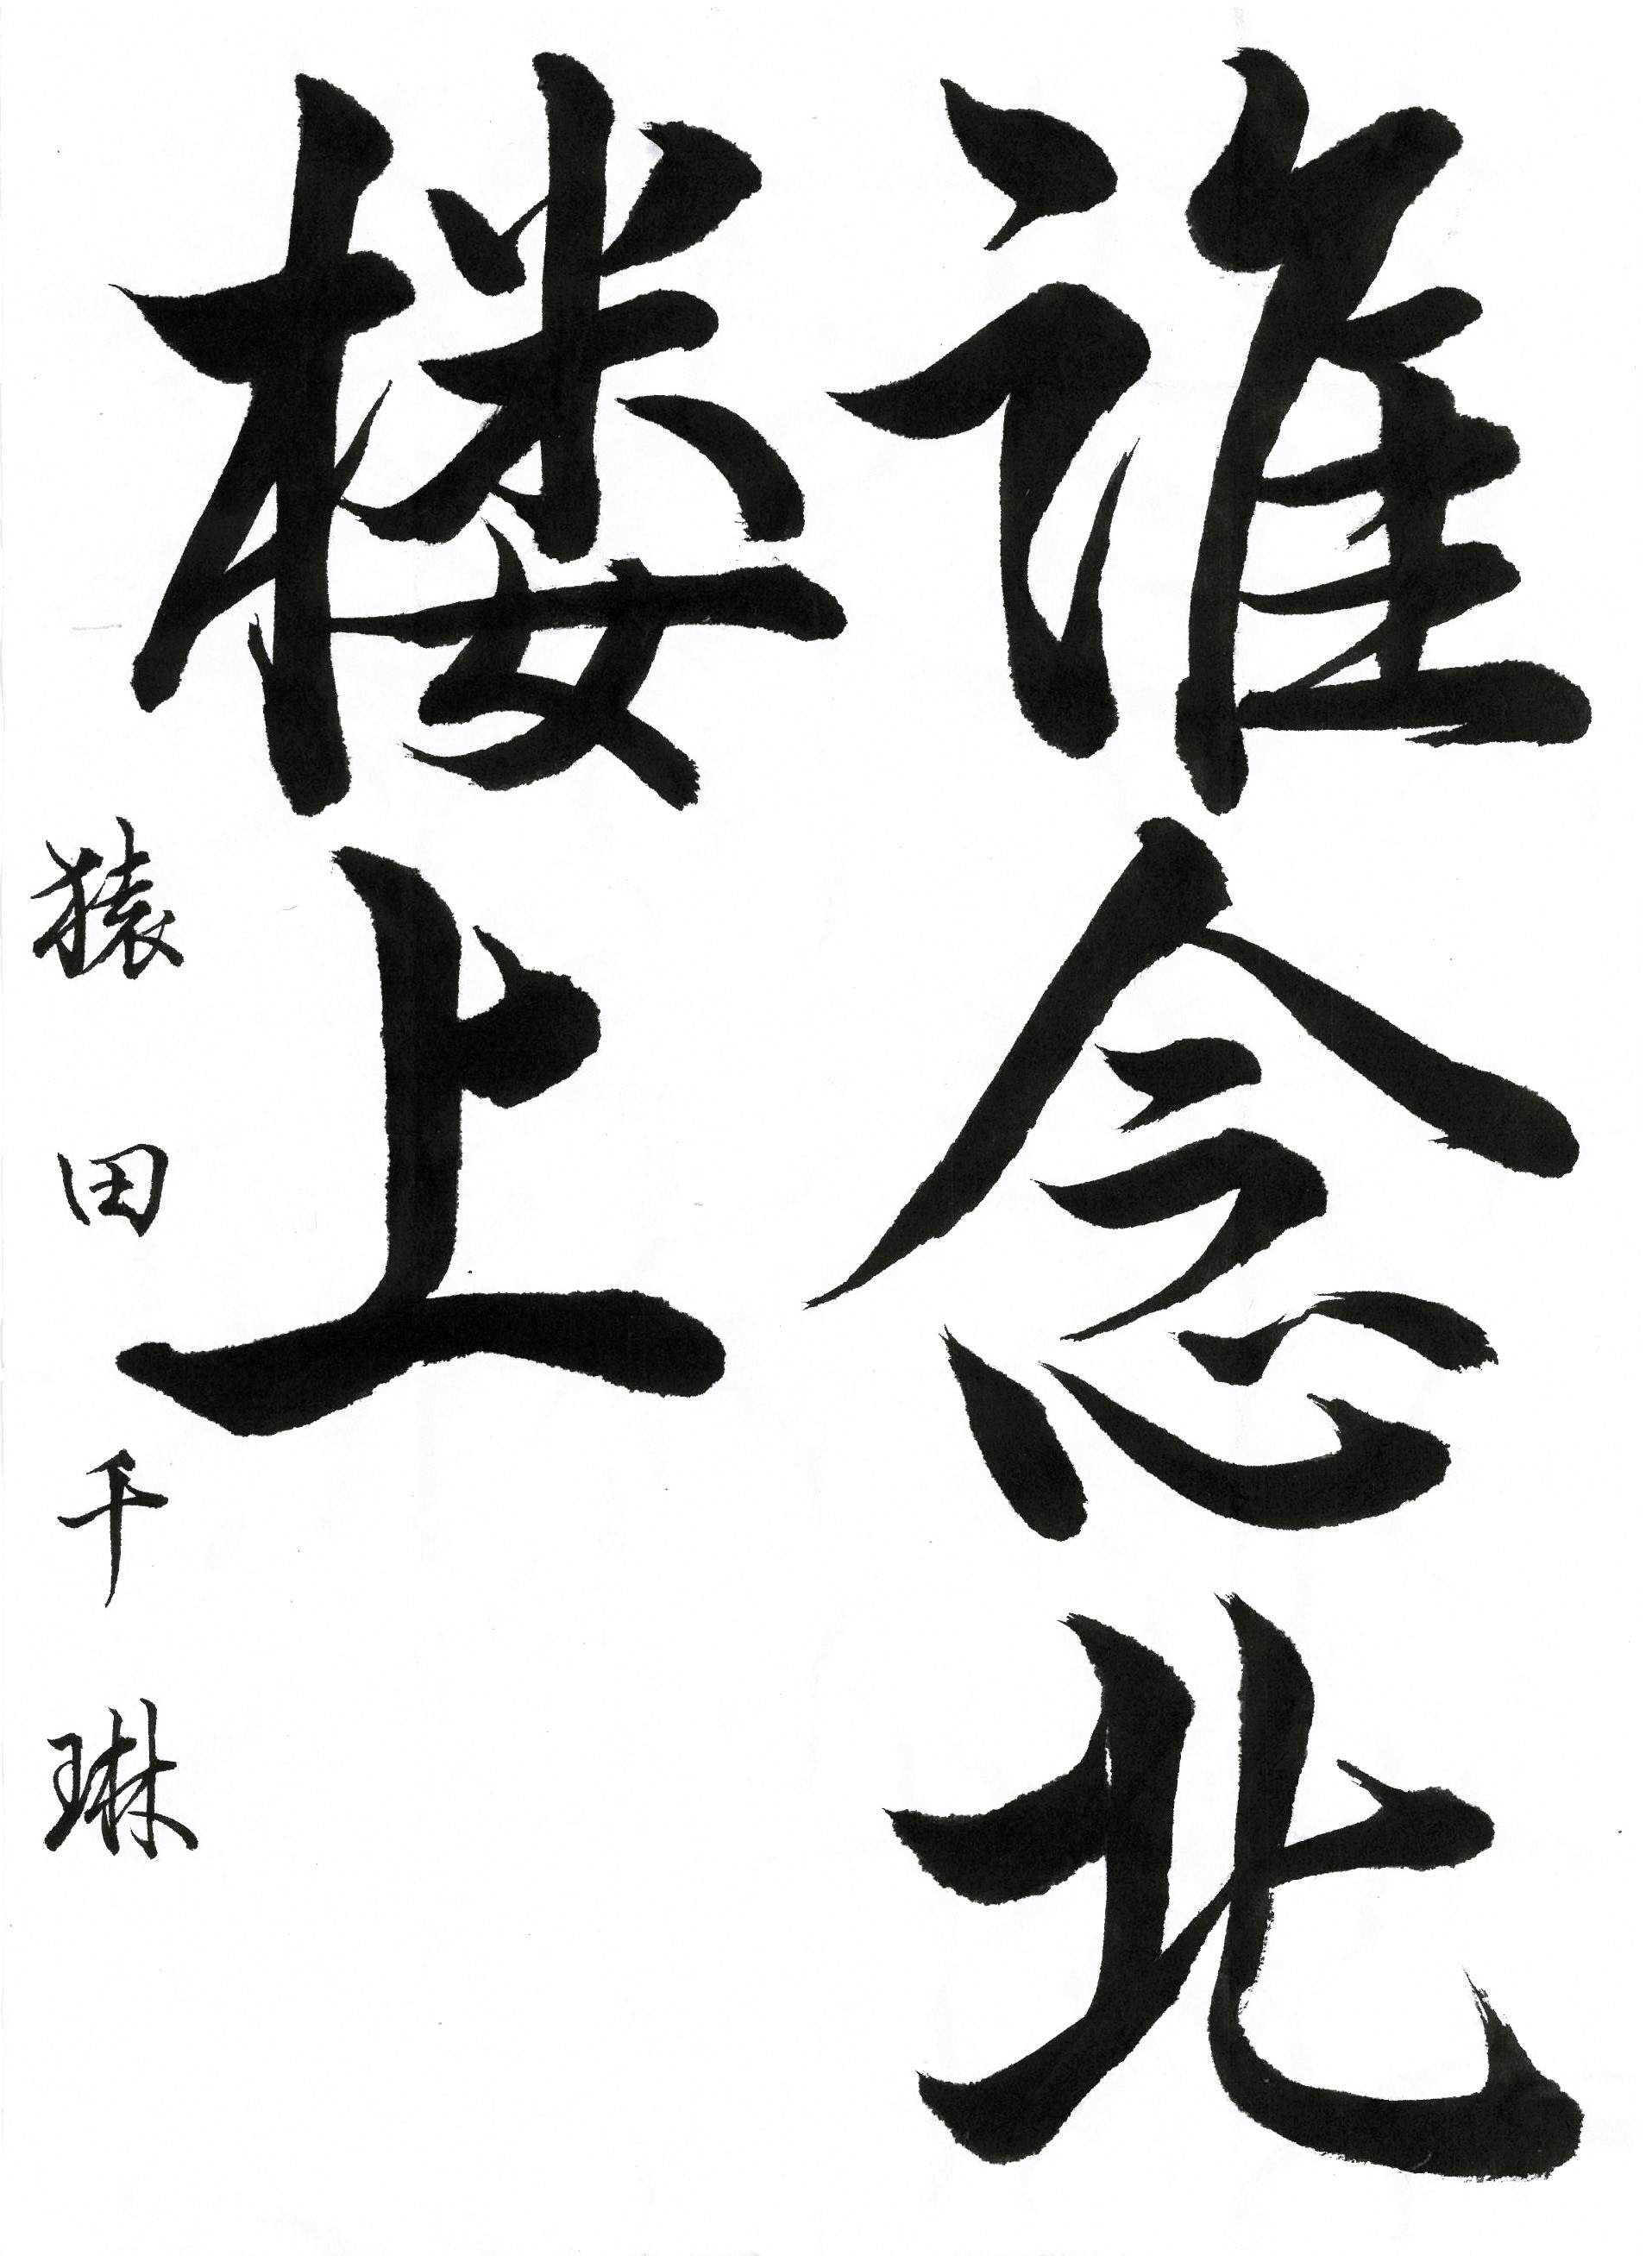 誰念北
楼上
猿田千琳